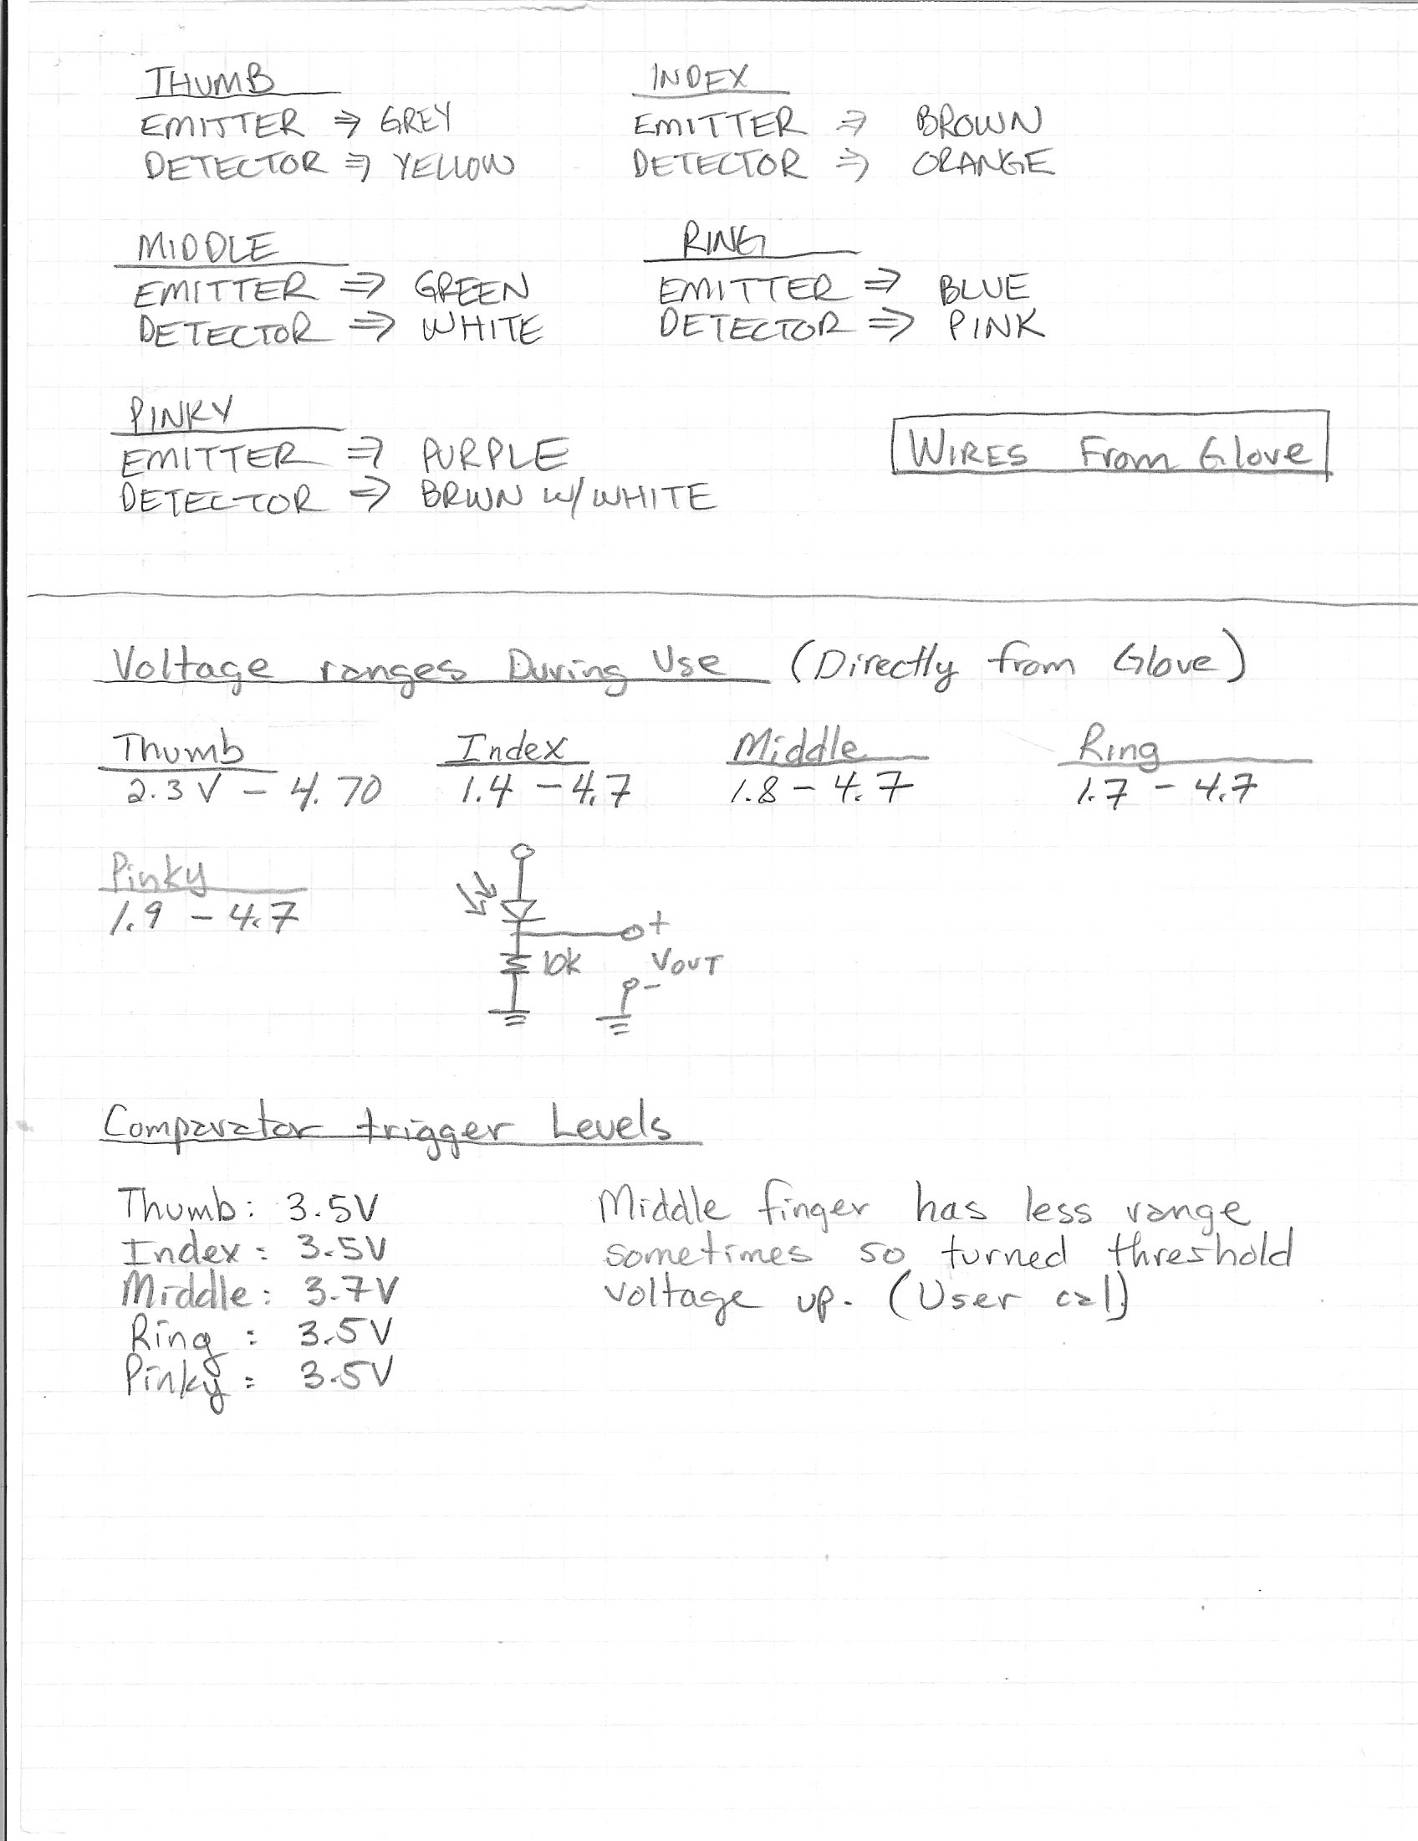 THUMB
EMITTER ⇒ GREY
DETECTOR ⇒ YELLOW
INDEX
EMITTER ⇒ BROWN
DETECTOR ⇒ ORANGE
MIDDLE
EMITTER ⇒ GREEN
DETECTOR ⇒ WHITE
RING
EMITTER ⇒ BLUE
DETECTOR ⇒ PINK
PINKY
EMITTER ⇒ PURPLE
DETECTOR ⇒ BRWN W/WHITE
WIRES From Glove
Voltage ranges During Use (Directly from Glove)
Thumb
2.3V - 4.70
Index
1.4 - 4.7
Middle
1.8 - 4.7
Ring
1.7 - 4.7
Pinky
1.9 - 4.7
+
10k
VOUT
-
Comparator trigger Levels
Thumb: 3.5V
Index: 3.5V
Middle: 3.7V
Ring: 3.5V
Pinky: 3.5V
Middle finger has less range
sometimes so turned threshold
voltage up. (User cal)